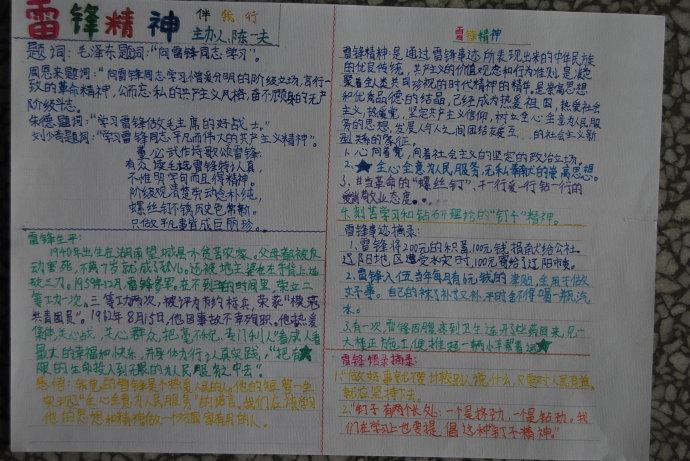 雷锋精神
伴我行
主办人:陈一夫
题词:毛泽东题词:"向雷锋同志学习"。
周恩来题词:"向雷锋同志学习憎爱分明的阶级立场,言行一
致的革命精神,公而忘私的共产主义风格,奋不顾身的无产
阶级斗志。
朱德题词:"学习雷锋做毛主席的好战士。"
刘少奇题词:"学习雷锋同志平凡而伟大的共产主义精神"。
董必武作诗歌颂雷锋
有众读毛选雷锋特认真
不惟明字句而且得精神。
阶级观清楚劳动念朴纯,
螺丝钉不锈历史色常新。
只做平凡事皆成巨丽珍。
雷锋生平:
1940年出生在湖南望城县
三等功两次,被评为节约标兵,荣获"模范
共青团员"。1962年8月15日,他因事故不幸殉职。他热爱
集体,关心战友,关心群众,把毫不利己,专门利人"看成人者
最大的幸福和快乐,并身体力行
限的生命投入到无限的为人民服务之中去"。
感悟:我觉的雷锋是个热爱人民的人。他的短暂一生
实现了"全心全意为人民服务"的诺言。我们应该学习
他的思想和精神做一个对国家有用的人。
雷锋精神
雷锋精神:是通过雷锋事迹所表现出来的中华民族
的优良传统,共产主义的价值观念和行为准则,是凝
聚着人类共同珍视的时代精神的精华,是崇高思想
和优秀品德的结晶,已经成为热爱祖国,热爱社会
主义,热爱党,坚定共产主义信仰,树立全心全意为人民服
务的思想,发展人与人之间团结友爱互……的社会主义新
型关系的象征。
1.心向着党,向着社会主义的坚定的政治立场。
2.全心全意为人民服务,无私奉献的崇高思想。
3.甘当革命的"螺丝钉",干一行爱一行钻一行的
爱岗敬业态度。
4.刻苦学习和钻研理论的"钉子"精神。
雷锋事迹摘录:
1.雷锋将200元的积蓄,100元钱捐献给公社。
辽阳地区遭受水灾时,100元寄给了辽阳市委。
2.雷锋入伍当年每月6元钱的津贴,全用于做
好事。自己的袜子补了又补,平时舍不得喝一瓶汽
水。
3.有一次,雷锋因腹疼到卫生连开了些药回来,见一
大楼正施工,便推起一辆小车帮着运
雷锋语录摘录:
1."做好事就不要计较别人说什么,只要对人民有益,
就应坚持下去。
2."钉子有两个长处:一个是挤劲,一个是钻劲。我
们在学习上也要提倡这种钉子精神。"